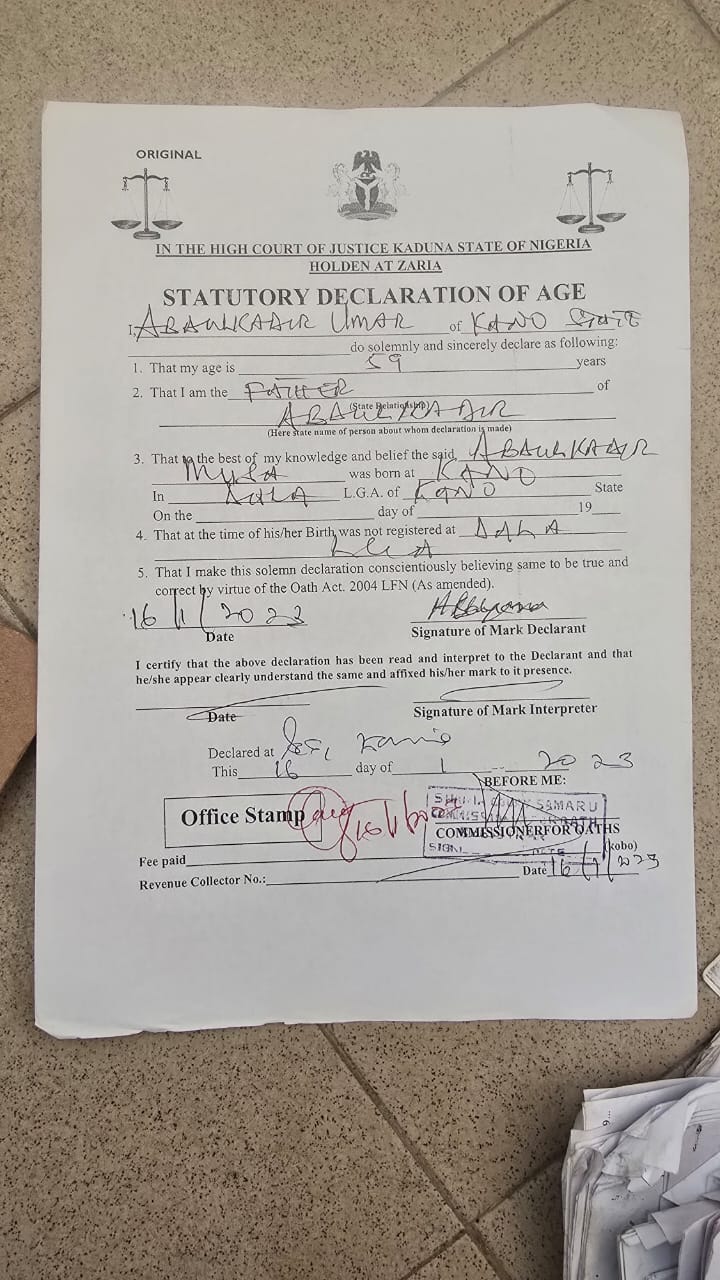 ORIGINAL
IN THE HIGH COURT OF JUSTICE KADUNA STATE OF NIGERIA
HOLDEN AT ZARIA
STATUTORY DECLARATION OF AGE
I, ABAULKADIR UMAR of KANO STATE
do solemnly and sincerely declare as following:
1. That my age is 59 years
2. That I am the FATHER of
(State Relationship)
ABAULKADIR
(Here state name of person about whom declaration is made)
3. That to the best of my knowledge and belief the said, ABAULKADIR
was born at KANO
In DALA L.G.A. of KANO State
On the day of 19
4. That at the time of his/her Birth was not registered at DALA
LGA
5. That I make this solemn declaration conscientiously believing same to be true and
correct by virtue of the Oath Act. 2004 LFN (As amended).
16/1/2023
Date Signature of Mark Declarant
I certify that the above declaration has been read and interpret to the Declarant and that
he/she appear clearly understand the same and affixed his/her mark to it presence.
Date Signature of Mark Interpreter
Declared at
This 16 day of 1 2023
BEFORE ME:
Office Stamp
SAMARU
COMMISSIONER FOR OATHS
SIGN DATE
(kobo)
Fee paid
Date 16/1/2023
Revenue Collector No.: